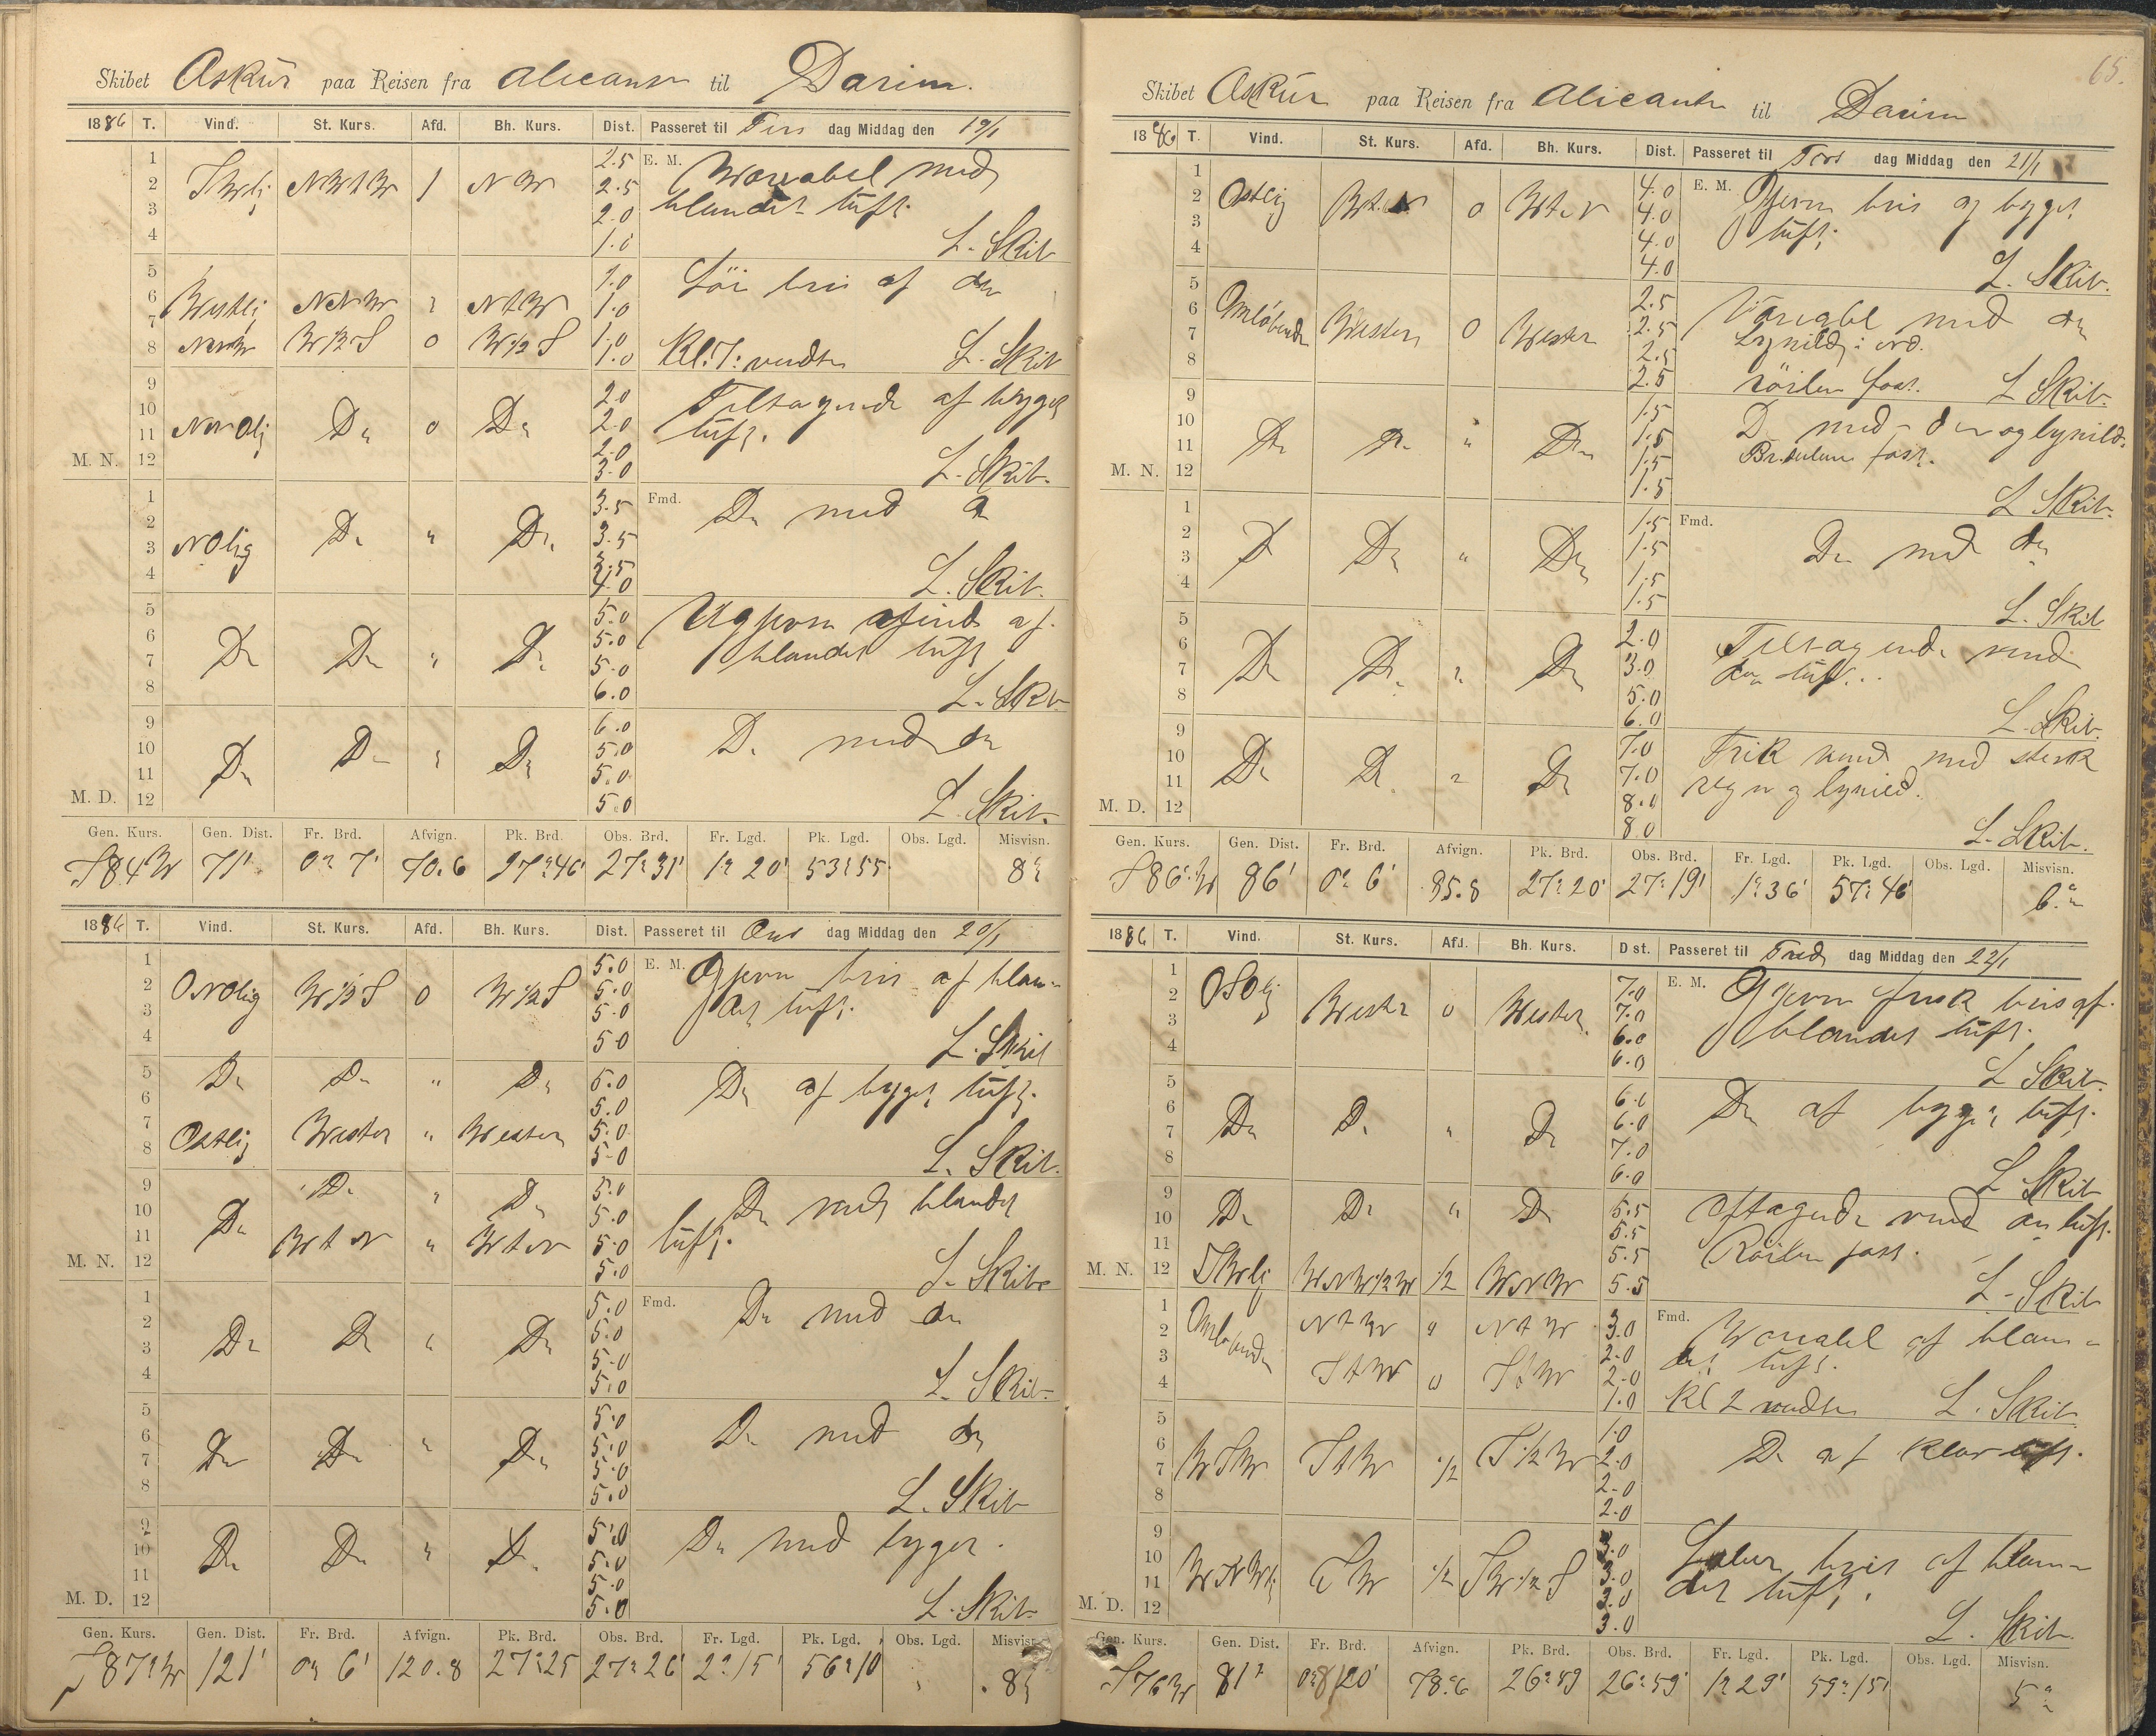 Skibet Askur paa Reisen fra Alicante til Darien.
1886 T. Vind. St. Kurs. Afd. Bh. Kurs. Dist. Passeret til Tirs dag Middag den 19/1
1 2.5 E. M. Warrabel med
2 SWlij NWtW 1 NW 2.5 blandet luft.
3 2.0
4 1.0 L. Skib
5 1.0 Löi bris af do
6 Westlij NNW " NtW 1.0
7 1.0
8 W½S 0 W½S 1.0 Kl: 7: vendte L. Skib
9 2.0 Tiltagende af byget
10 NNOlij Do 0 Do 2.0 luft.
11 2.0
M. N. 12 3.0 L. Skib.
1 3.5 Fmd. Do med do
2 NOlig Do " Do 3.5
3 3.5
4 4.0 L. Skib.
5 5.0 af
6 Do Do " Do 5.0 blandet luft
7 5.0
8 6.0 L. Skib
9 6.0 Do med do
10 Do Do " Do 5.0
11 5.0
M. D. 12 5.0 L. Skib.
Gen. Kurs. Gen. Dist. Fr. Brd. Afvign. Pk. Brd. Obs. Brd. Fr. Lgd. Pk. Lgd. Obs. Lgd. Misvisn.
S84W 71' 0° 7' 70.6 27°46' 27°31' 1° 20' 53°55 8°
1886 T. Vind. St. Kurs. Afd. Bh. Kurs. Dist. Passeret til Ons dag Middag den 20/1
1 5.0 E. M. Gjevn bris af blan-
2 ONOlig W½S 0 W½S 5.0 det luft.
3 5.0
4 5.0 L. Skib
5 Do Do " Do 5.0 Do af byget luft.
6 5.0
7 Ostlij Wester " Wester 5.0
8 5.0 L. Skib.
9 Do " Do 5.0 Do med blandet
10 Do 5.0 luft.
11 WtN " WtN 5.0
M. N. 12 5.0 L. Skib
1 5.0 Fmd. Do med do
2 Do Do " Do 5.0
3 5.0
4 5.0 L. Skib.
5 5.0 Do med do
6 Do Do " Do 5.0
7 5.0
8 5.0 L. Skib
9 5.0 Do med byger.
10 Do Do " Do 5.0
11 5.0
M. D. 12 5.0 L. Skib
Gen. Kurs. Gen. Dist. Fr. Brd. Afvign. Pk. Brd. Obs. Brd. Fr. Lgd. Pk. Lgd. Obs. Lgd. Misvisn.
S87°W 121' 0° 6' 120.8 27°25 27°26' 2°15' 56°10 8°
65.
Skibet Askur paa Reisen fra Alicante til Darien
1886 T. Vind. St. Kurs. Afd. Bh. Kurs. Dist. Passeret til Tors dag Middag den 21/1
1 4.0 E. M. Gjevn bris og byget
2 Ostlij WtN 0 WtN 4.0 luft.
3 4.0
4 4.0 L. Skib.
5 2.5 Variabel med do
6 Omløbende Western 0 Wester 2.5 Lynild i NO.
7 2.5
8 2.5 röilen fast. L Skib.
9 1.5 Do med do og lynild.
10 Do Do " Do 1.5 fast.
11 1.5
M. N. 12 1.5 L Skib.
1 1.5 Fmd. Do med do
2 Do Do " Do 1.5
3 1.5
4 1.5 L. Skib
5 2.0 Tiltagende vind
6 Do Do " Do 3.0 do luft..
7 5.0
8 6.0 L. Skib.
9 7.0 Frisk vind med sterk
10 Do Do " Do 7.0 regn og lynild.
11 8.0
M. D. 12 8.0 L. Skib.
Gen. Kurs. Gen. Dist. Fr. Brd. Afvign. Pk. Brd. Obs. Brd. Fr. Lgd. Pk. Lgd. Obs. Lgd. Misvisn.
S86°W 86' 0° 6' 85.8 27°20' 27°19' 1°36' 57°46' 6°
1886 T. Vind. St. Kurs. Afd. Bh. Kurs. D st. Passeret til Fred dag Middag den 22/1
1 7.0 E. M. Gjevn frisk bris af
2 OSOlij Wester 0 Wester 7.0 blandet luft.
3 6.0
4 6.0 L Skib.
5 6.0 Do af byget luft.
6 Do Do " Do 6.0
7 7.0
8 6.0 L Skib
9 5.5 aftagende vind do luft.
10 Do Do " Do 5.5 Röilen fast.
11 5.5
M. N. 12 SWlij WNW½W ½ WNW 5.5 L. Skib
1 Omløbende NtW " NtW 3.0 Fmd. Warrabel af blan-
2 2.0 det luft.
3 StW 0 StW 2.0
4 1.0 Kl 2 vendte L. Skib
5 1.0 Do af klar luft.
6 WSW StW ½ S½W 2.0
7 2.0
8 2.0
9 3.0 Laber bris af blan-
10 WNWlij SW ½ SW½S 3.0 det luft.
11 3.0
M. D. 12 3.0 L. Skib.
Gen. Kurs. Gen. Dist. Fr. Brd. Afvign. Pk. Brd. Obs. Brd. Fr. Lgd. Pk. Lgd. Obs. Lgd. Misvisn.
S76W 81' 20' 78.6 26°59 26°59' 1°29' 59°15' 5°